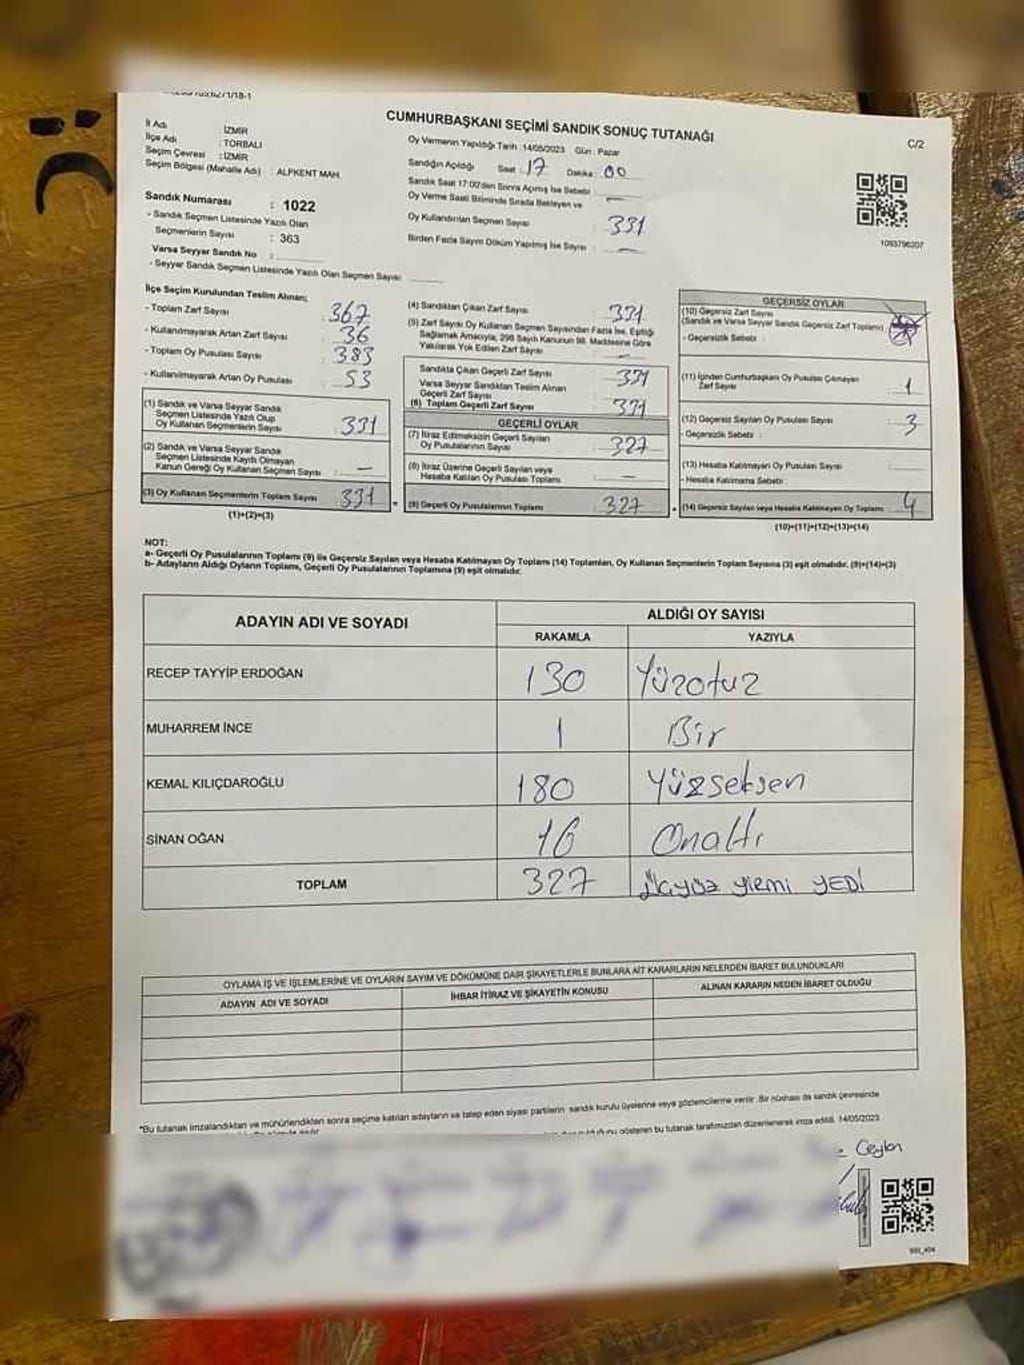 CUMHURBAŞKANI SEÇİMİ SANDIK SONUÇ TUTANAĞI
C/2
İl Adı : İZMİR
İlçe Adı : TORBALI
Seçim Çevresi : İZMİR
Seçim Bölgesi (Mahalle Adı) : ALPKENT MAH.
Oy Vermenin Yapıldığı Tarih 14/05/2023 Gün : Pazar
Sandığın Açıldığı Saat : 17 Dakika : 00
Sandık Saat 17:00'den Sonra Açılmış İse Sebebi :
Oy Verme Saati Bitiminde Sırada Bekleyen ve
Oy Kullandırılan Seçmen Sayısı 331
Birden Fazla Sayım Döküm Yapılmış İse Sayısı : —
1093796207
Sandık Numarası : 1022
- Sandık Seçmen Listesinde Yazılı Olan
Seçmenlerin Sayısı : 363
Varsa Seyyar Sandık No :
- Seyyar Sandık Seçmen Listesinde Yazılı Olan Seçmen Sayısı:
İlçe Seçim Kurulundan Teslim Alınan;
- Toplam Zarf Sayısı : 367
- Kullanılmayarak Artan Zarf Sayısı : 36
- Toplam Oy Pusulası Sayısı : 383
- Kullanılmayarak Artan Oy Pusulası : 53
(1) Sandık ve Varsa Seyyar Sandık
Seçmen Listesinde Yazılı Olup
Oy Kullanan Seçmenlerin Sayısı : 331
(2) Sandık ve Varsa Seyyar Sandık
Seçmen Listesinde Kayıtlı Olmayan
Kanun Gereği Oy Kullanan Seçmen Sayısı : —
(3) Oy Kullanan Seçmenlerin Toplam Sayısı : 331
(1)+(2)=(3)
(4) Sandıktan Çıkan Zarf Sayısı : 331
(5) Zarf Sayısı Oy Kullanan Seçmen Sayısından Fazla İse, Eşitliği
Sağlamak Amacıyla, 298 Sayılı Kanunun 98. Maddesine Göre
Yakılarak Yok Edilen Zarf Sayısı : —
Sandıkta Çıkan Geçerli Zarf Sayısı : 331
Varsa Seyyar Sandıktan Teslim Alınan
Geçerli Zarf Sayısı :
(6) Toplam Geçerli Zarf Sayısı : 331
GEÇERLİ OYLAR
(7) İtiraz Edilmeksizin Geçerli Sayılan
Oy Pusulalarının Sayısı : 327
(8) İtiraz Üzerine Geçerli Sayılan veya
Hesaba Katılan Oy Pusulası Toplamı : —
(9) Geçerli Oy Pusulalarının Toplamı : 327
GEÇERSİZ OYLAR
(10) Geçersiz Zarf Sayısı
(Sandık ve Varsa Seyyar Sandık Geçersiz Zarf Toplamı) :
- Geçersizlik Sebebi :
(11) İçinden Cumhurbaşkanı Oy Pusulası Çıkmayan
Zarf Sayısı : 1
(12) Geçersiz Sayılan Oy Pusulası Sayısı : 3
- Geçersizlik Sebebi :
(13) Hesaba Katılmayan Oy Pusulası Sayısı :
- Hesaba Katılmama Sebebi :
(14) Geçersiz Sayılan veya Hesaba Katılmayan Oy Toplamı : 4
(10)+(11)+(12)+(13)=(14)
NOT:
a- Geçerli Oy Pusulalarının Toplamı (9) ile Geçersiz Sayılan veya Hesaba Katılmayan Oy Toplamı (14) Toplamları, Oy Kullanan Seçmenlerin Toplam Sayısına (3) eşit olmalıdır. (9)+(14)=(3)
b- Adayların Aldığı Oyların Toplamı, Geçerli Oy Pusulalarının Toplamına (9) eşit olmalıdır.
ADAYIN ADI VE SOYADI
ALDIĞI OY SAYISI
RAKAMLA YAZIYLA
RECEP TAYYİP ERDOĞAN 130 Yüzotuz
MUHARREM İNCE 1 Bir
KEMAL KILIÇDAROĞLU 180 Yüzseksen
SİNAN OĞAN 16 Onaltı
TOPLAM 327 Üçyüz yirmi YEDİ
OYLAMA İŞ VE İŞLEMLERİNE VE OYLARIN SAYIM VE DÖKÜMÜNE DAİR ŞİKAYETLERLE BUNLARA AİT KARARLARIN NELERDEN İBARET BULUNDUKLARI
ADAYIN ADI VE SOYADI İHBAR İTİRAZ VE ŞİKAYETİN KONUSU ALINAN KARARIN NEDEN İBARET OLDUĞU
*Bu tutanak imzalandıktan ve mühürlendikten sonra seçime katılan adayların ve talep eden siyasi partilerin sandık kurulu üyelerine veya gözlemcilerine verilir. Bir nüshası da sandık çevresinde
gösteren bu tutanak tarafımızdan düzenlenerek imza edildi. 14/05/2023
Ceylan